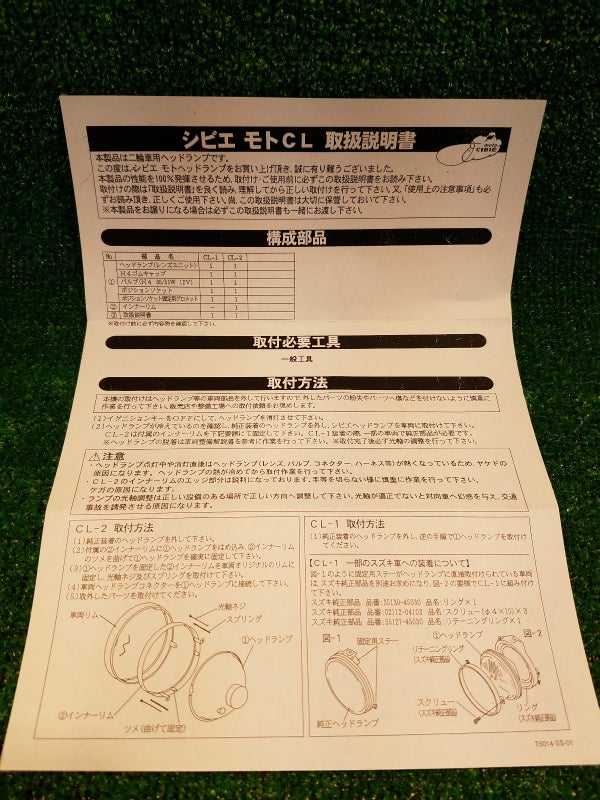 シビエ モトCL 取扱説明書
moto
CIBIE
本製品は二輪車用ヘッドランプです。
この度は、シビエ モトヘッドランプをお買い上げ頂き、誠に有り難うございました。
本製品の性能を100％発揮させるため、取付け・ご使用前に必ずこの取扱説明書をお読み下さい。
取付けの際は「取扱説明書」を良く読み、理解してから正しい取付けを行って下さい。又、「使用上の注意事項」も必
ずお読み頂き、正しくご使用下さい。尚、この取扱説明書は大切に保管しておいて下さい。
※本製品をお譲りになる場合は必ずこの取扱説明書も一緒にお渡し下さい。
構成部品
No. 部品名 CL-1 CL-2
① ヘッドランプ(レンズユニット) 1 1
H4ゴムキャップ 1 1
バルブ(H4 60/55W 12V) 1 1
ポジションソケット 1 1
ポジションソケット固定用グロメット 1 1
② インナーリム 1
③ 取扱説明書 1 1
※取付け前に必ず内容物を確認して下さい。
取付必要工具
一般工具
取付方法
本機の取付けはヘッドランプ等の車両部品を外して行いますので、外したパーツの紛失やパーツへ傷などを付けないように慎重に
作業を行って下さい。販売店や整備工場への取付依頼をお奨めします。
(1)イグニションキーをOFFにして、ヘッドランプを消灯させて下さい。
(2)ヘッドランプが冷えているのを確認し、純正装着のヘッドランプを外し、シビエヘッドランプを車両に取付けて下さい。
CL-2は付属のインナーリムに下記要領にて固定して下さい。CL-1装着の際、一部の車両で純正部品が必要です。
※ヘッドランプの脱着は車両整備解説書を参考に作業を行って下さい。※取付完了後必ず光軸の調整を行って下さい。
⚠注意
・ヘッドランプ点灯中や消灯直後はヘッドランプ(レンズ、バルブ、コネクター、ハーネス等)が熱くなっているため、ヤケドの
原因になります。ヘッドランプの熱が冷めてから取付け作業を行って下さい。
・CL-2のインナーリムのエッジ部分は鋭利になっております、手等を切らない様に慎重に作業を行って下さい。
ケガの原因になります。
・ランプの光軸調整は正しい設備のある場所で正しい方向へ調整して下さい。光軸が適正でないと対向車へ幻惑を与え、交通
事故を誘発させる原因になります。
CL-2 取付方法
(1)純正装着のヘッドランプを外して下さい。
(2)付属の②インナーリムに①ヘッドランプをはめ込み、②インナーリム
のツメを曲げて①ヘッドランプを確実に固定して下さい。
(3)①ヘッドランプを固定した②インナーリムを車両オリジナルのリムに
固定し、光軸ネジ及びスプリングを取付けて下さい。
(4)車両ヘッドランプコネクターを①ヘッドランプに接続して下さい。
(5)取外したパーツを取付けてください。
車両リム
光軸ネジ
スプリング
①ヘッドランプ
②インナーリム
ツメ(曲げて固定)
CL-1 取付方法
(1)純正装着のヘッドランプを外し、逆の手順で①ヘッドランプを取付け
てください。
【CL-1 一部のスズキ車への装着について】
図-1のように固定用ステーがヘッドランプに直接取付けられている車両
は、スズキ純正部品を別途お求めになり、図-2の要領でCL-1に組み付け
て下さい。
スズキ純正部品 品番:35130-45050 品名:リング×1
スズキ純正部品 品番:02112-04103 品名:スクリュー(φ4×10)×3
スズキ純正部品 品番:35127-45030 品名:リテーニングリング×1
図-1
固定用ステー
純正ヘッドランプ
①ヘッドランプ
図-2
リテーニングリング
(スズキ純正部品)
スクリュー
(スズキ純正部品)
リング
(スズキ純正部品)
T5014-SS-01